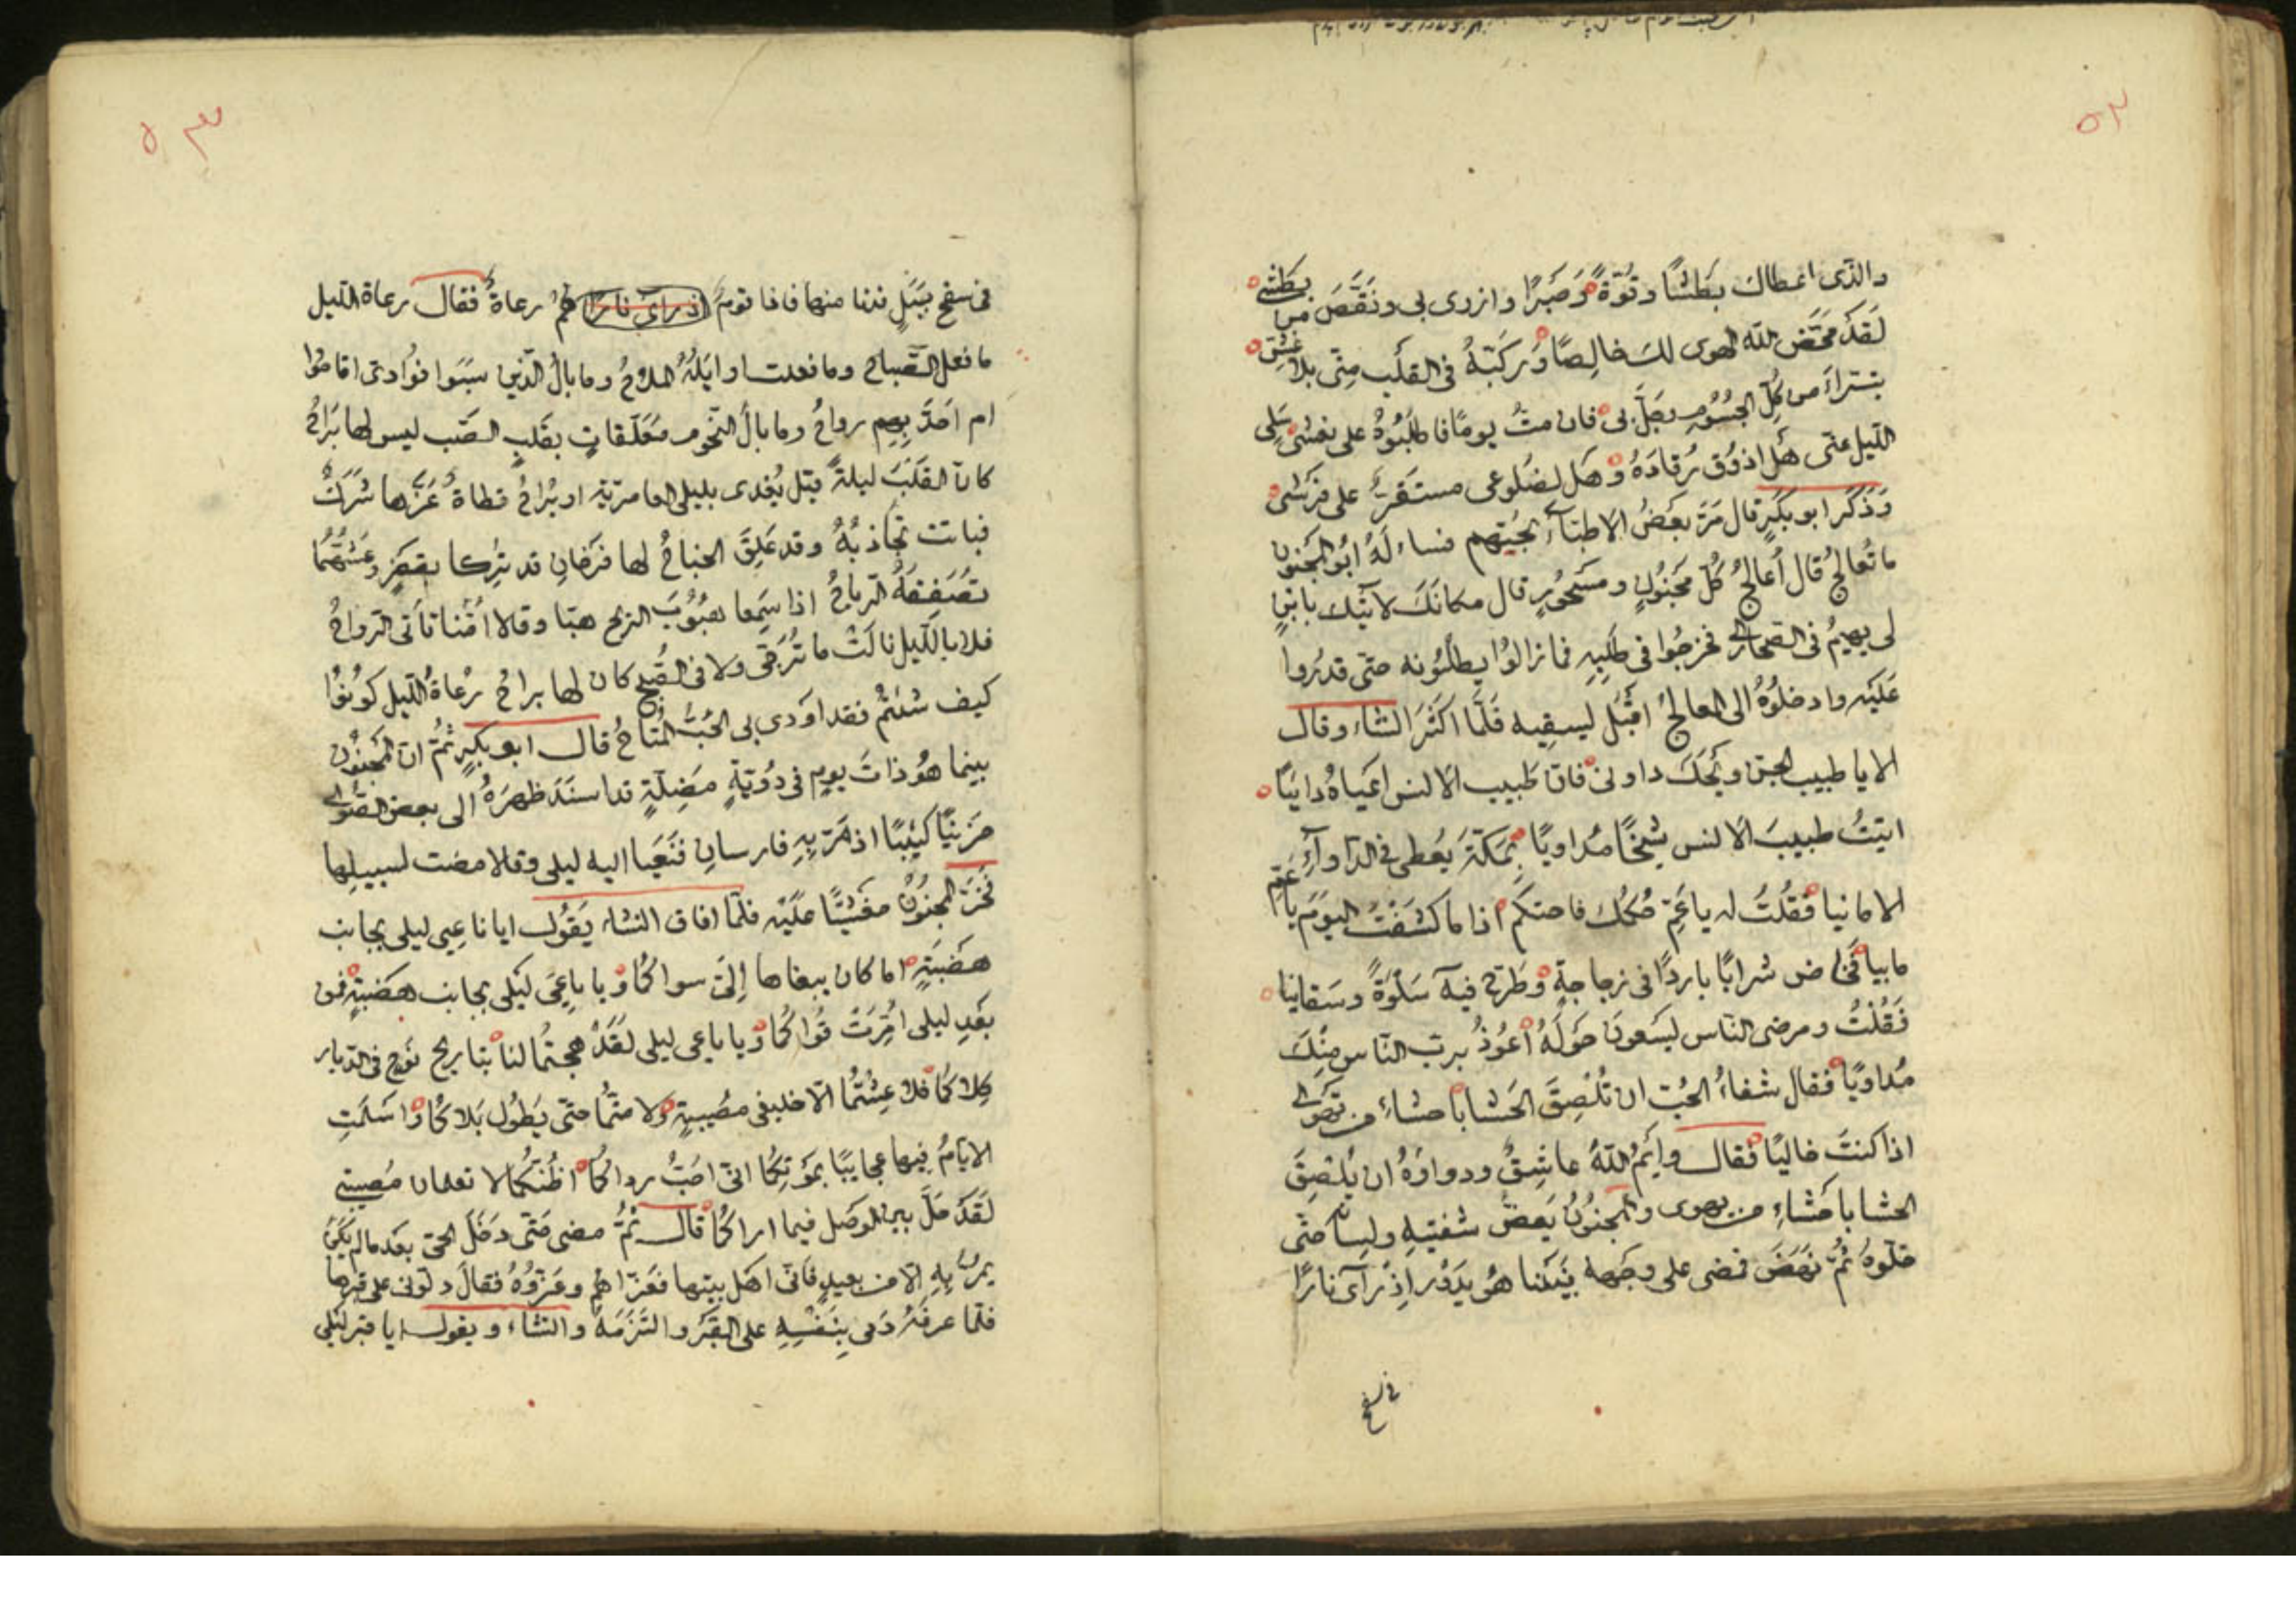 ٥٢
والذى اعطاك بَطشًا وقُوّةً وَصَبرًا وازرى بى ونَقَّصَ من بَطشى
لَقَد مَحَّضَ اللّه الهوى لك خالِصًا وَرَكَّبَهُ فى القَلب مِنّى بلا غِشّ
تبّراءَ من كُلّ الجُسُومِ وحَلَّ بى فان متُ يومًا فاطلبُوهُ على نعشى سَلى
اللّيل عنّى هَل اذوُق رُقادَهُ وهَل لضلوعى مستَقَرّ على فرَشى
وَذكَرَ ابو بكرٍ قال مَرَّ بعَضُ الاطبّآءِ بحيّهم فساءلَهُ ابُو المجنون
ما تُعالجُ قال اُعالجُ كُلّ مَجنُونٍ ومسَحُورٍ قال مكانَكَ لآتيك بابنٍ
لى يهيمُ فى الصحارى فخرجُوا فى طلَبِهِ فما زالوُا يطلبُونه حتّى قدرُوا
عَليَه وادخلوُهُ الى المعالجُ اقبَل ليسقِيه فَلَمّا اكثَرَ انشاء وقال
الا يا طبيب الجن ويَحَكَ داونى فانّ طَبيب الانس اعيَاهُ دائيًا
اتيتُ طبيبَ الانس شَيخًا مُداويًا بمَكّةَ يُعطى فى الدّاوآءِ
الامانيا فقُلتُ له يا عَمّ حُكمُك فاحتكم اذا ما كشَفتُ اليوَمَ يا عَمّ
مابيا فخاض شرابًا باردًا فى زجاجةٍ وطَرّح فيهآ سَلوَةً وسَقانيا
فَقُلتُ ومرضى النّاس يَسَعونَ حَولَهُ اعُوذُ برتِ النّاس مِنكَ
مُداويًا فقال شفاءُ الحُبّ ان تُلصِقَ الحَشا باحشاءِ من تهوى
اذا كنتَ خاليًا فقال وايَمُ اللّهُ عاشِقٌ ودواؤهُ ان يُلصِقَ
الحشا باحَشاءِ من يهوى والمجنُونُ يَعضّ شفتيهِ ولسانه حتّى
خلّوهُ ثمّ نهَضَ فمضى على وجَههِ بَينَما هو يَدوُر اِذ رَآى نارًا
فى سفح
٥٣
فى سفح جَبَلٍ فدنا منها فاذا قومٌ اذ رأى نارًا هُم رعاةٌ فقال رعاة اللّيل
ما فعل الصّباح وما فعلت اوايلُهُ الملاحُ وما بالُ الذين سبَوا فؤادى اقاموُا
ام اجَدّ بِهِم رواحُ وما بالُ النّجوم مَعَلّقاتٍ بقَلب الصَّب ليس لها بَراحُ
كانّ القَلبَ ليلةَ قيل يُغدى بليلى العامريّةِ او يُراحُ قطاةٌ عَزّها شَرَكٌ
فباتت تجُاذبُهُ وقد عَلِقَ الجناحُ لها فرَخانِ قد تُرِكا بقَفرٍ وعَشّهُما
تصَفِقهُ الرياحُ اذا سَمِعا هبُوُبَ الريح هبّا وقالا اُمّنا تأتى الرّواحُ
فلا باللّيل نالَت ما تُرَجّى ولا فى الصُبح كان لها براحُ رُعاةُ اللّيل كونوُا
كيف شئتُم فقد اودى بى الحُبُّ المُتاحُ قال ابو بكرٍ ثمّ ان المجَنُون
بينما هوُ ذاتَ يومٍ فى دَويّةٍ مَضِلّةٍ قد اسنَدَ ظهرَهُ الى بعض الصّوى
حزينًا كئيبًا اذ مَرّ بِهِ فارسانِ فنَعَيا اليه ليلى وقالا مضت لسبيلها
فخَرَّ المجنُونُ مغَشيًّا عليَه فلمّا افاق انشاء يَقُول ايا ناعِيى ليلى بجانب
هضَبَةٍ اما كان ينعاها اِلىّ سواكُما ويا ناعِيى ليَلى بجانب هضَبةٍ فمن
بعَدِ ليلى اُمِرّت قُواكُما ويا ناعى ليلى لقَد هجتُما لنا تباريح نَوحٍ فى الديار
كِلاكُما فلا عِشتُما الّا حليفى مصُيبةٍ ولا متّما حتّى يَطُول بَلاكُما واسلَمتِ
الايامُ فيها عجايبًا بمَوتِكُما انى احُبُّ رداكُما اظُنّكُما لا تعلمان مُصيبتى
لقَدَ حَلّ بين الوَصل فيما اراكُما قال ثمُّ مضى حَتّى دخَلَ الحىّ بعَد ما لم يكَن
يَمرُّ بِهِ الّا من بعيدٍ فاتى اهَل بيتها فعَزّاهُم وعَزّوهُ فقال دلّونى على قبرها
فلمّا عرفَهُ رَمى بِنَفسِهِ على القَبَر والتزَمَهُ وانشاء ويقول ايا قبر ليلى